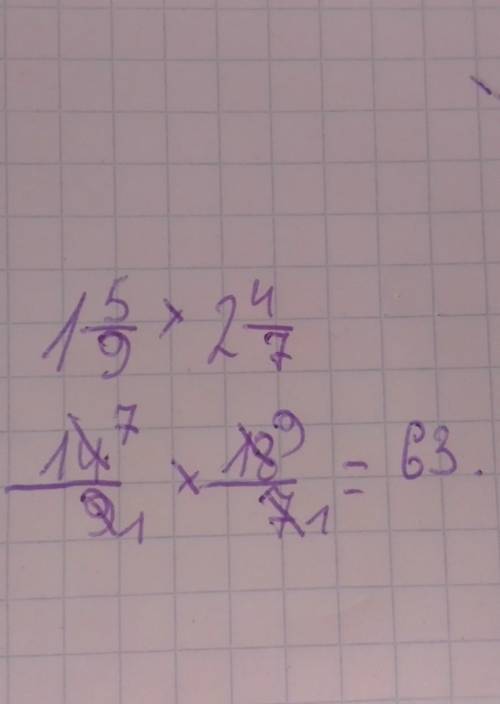 1 5/9 × 2 4/7
14 7/9 1 × 18 9/7 1 = 63.